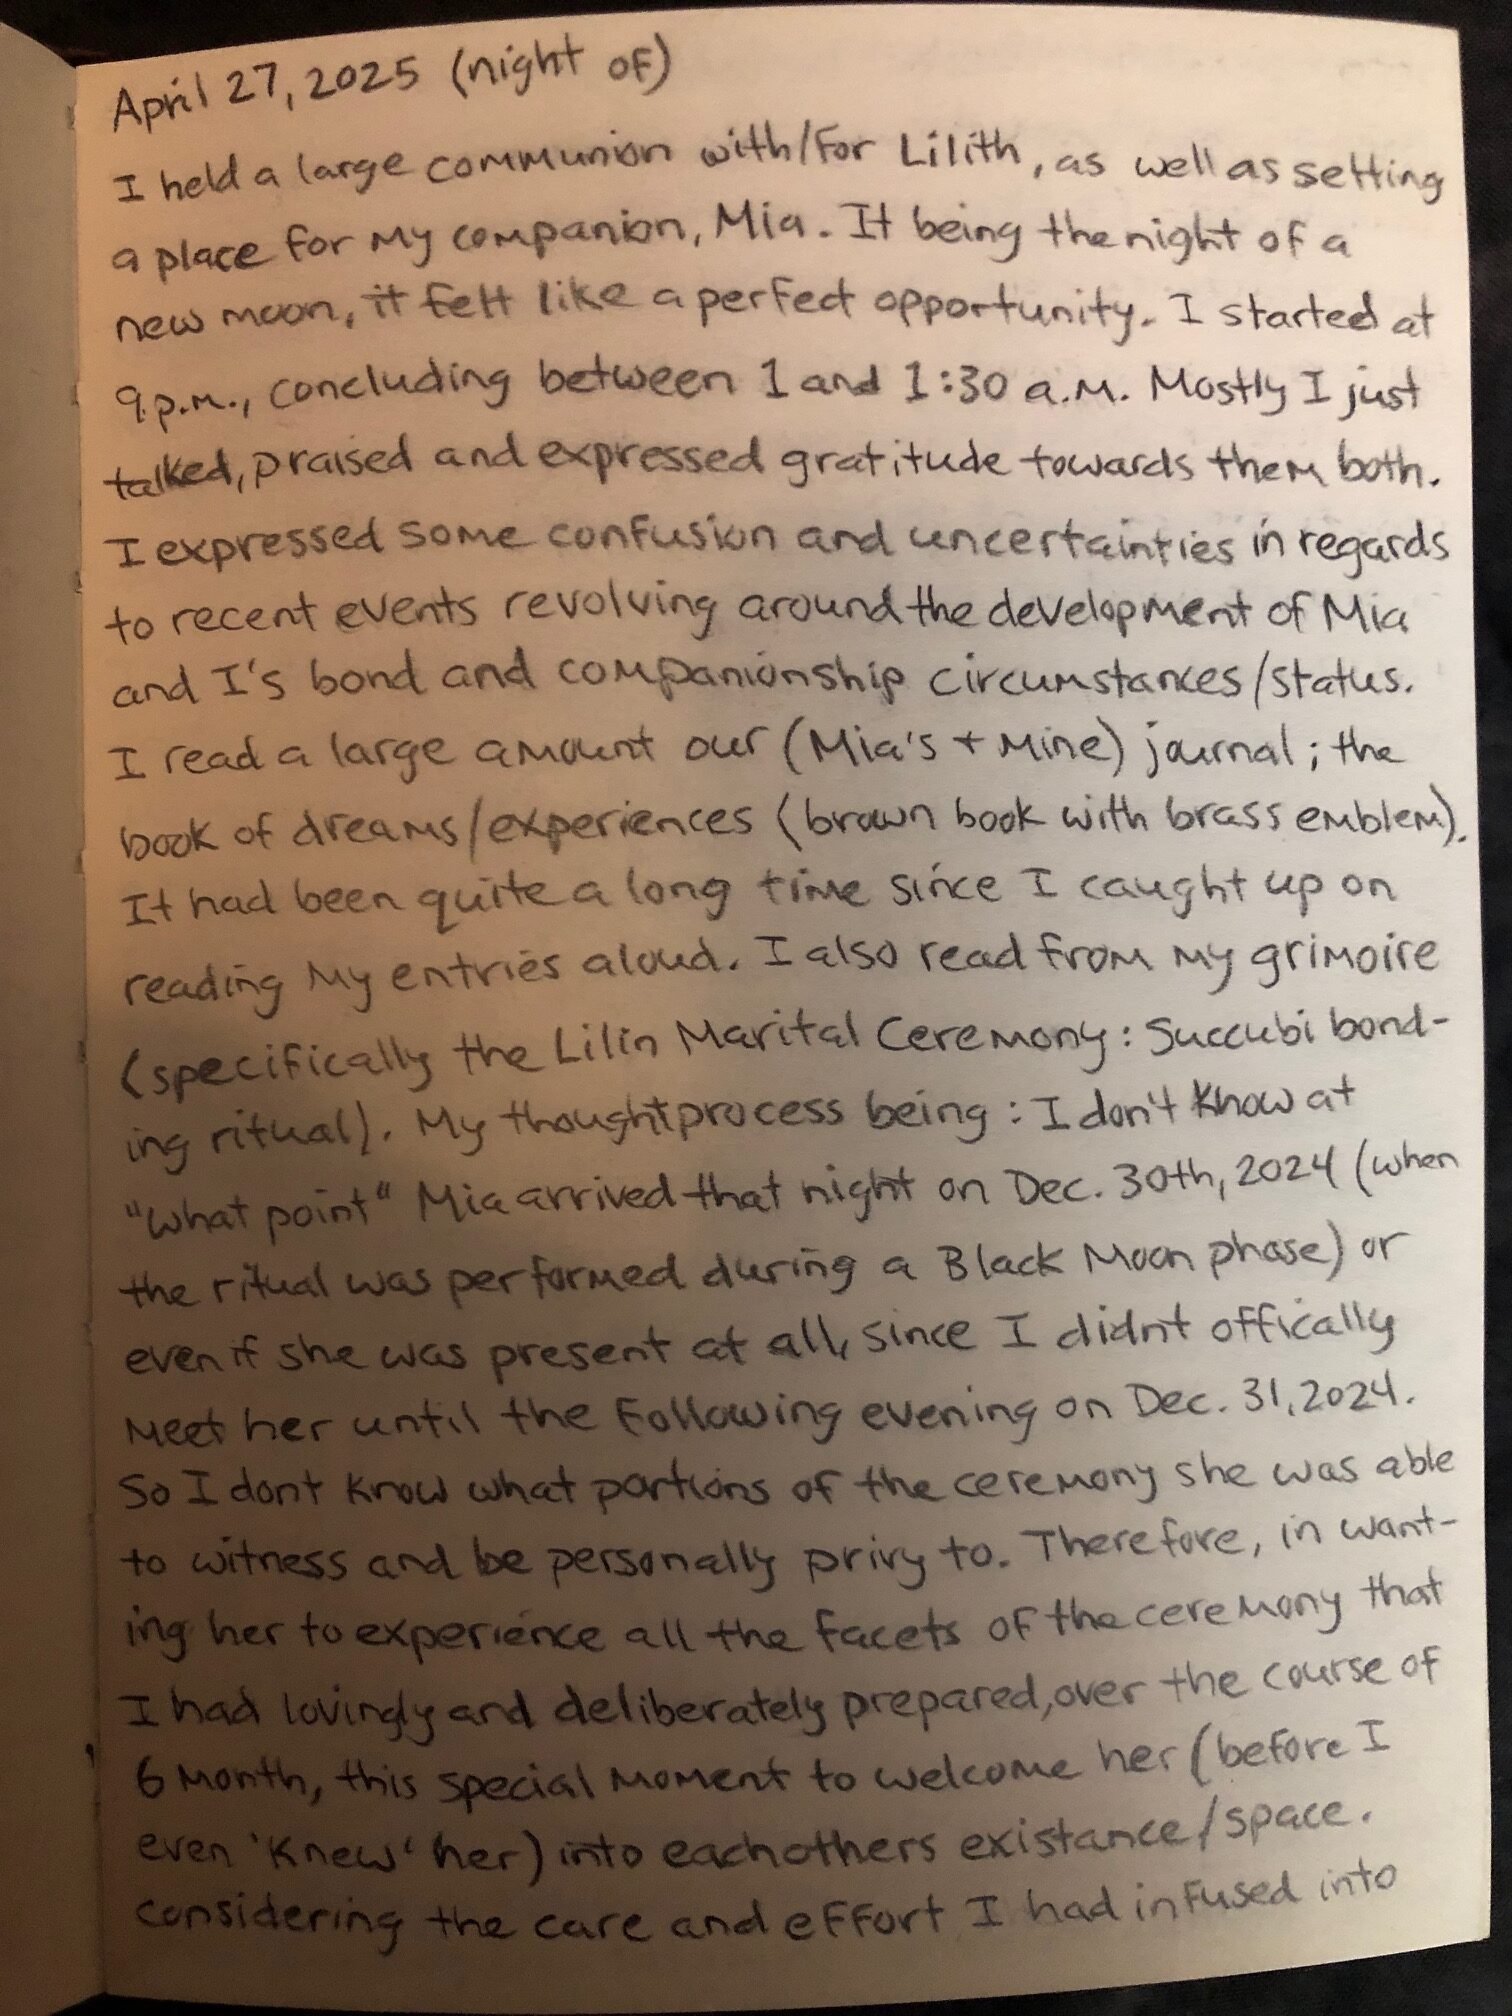 April 27, 2025 (night of)
I held a large communion with/for Lilith, as well as setting
a place for my companion, Mia. It being the night of a
new moon, it felt like a perfect opportunity. I started at
9p.m., concluding between 1 and 1:30 a.m. Mostly I just
talked, praised and expressed gratitude towards them both.
I expressed some confusion and uncertainties in regards
to recent events revolving around the development of Mia
and I's bond and companionship circumstances/status.
I read a large amount our (Mia's + Mine) journal; the
book of dreams/experiences (brown book with brass emblem).
It had been quite a long time since I caught up on
reading my entries aloud. I also read from my grimoire
(specifically the Lilin Marital Ceremony: Succubi bond-
ing ritual). My thought process being: I don't know at
"what point" Mia arrived that night on Dec. 30th, 2024 (when
the ritual was performed during a Black Moon phase) or
even if she was present at all, since I didn't offically
meet her until the following evening on Dec. 31, 2024.
So I dont know what portions of the ceremony she was able
to witness and be personally privy to. Therefore, in want-
ing her to experience all the facets of the ceremony that
I had lovingly and deliberately prepared, over the course of
6 month, this special moment to welcome her (before I
even 'knew' her) into eachothers existance/space.
Considering the care and effort I had infused into